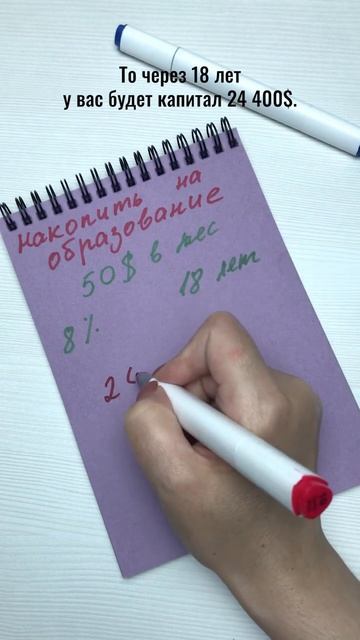 То через 18 лет
у вас будет капитал 24 400$.
накопить на
образование
50$ в мес
8% 18 лет
24